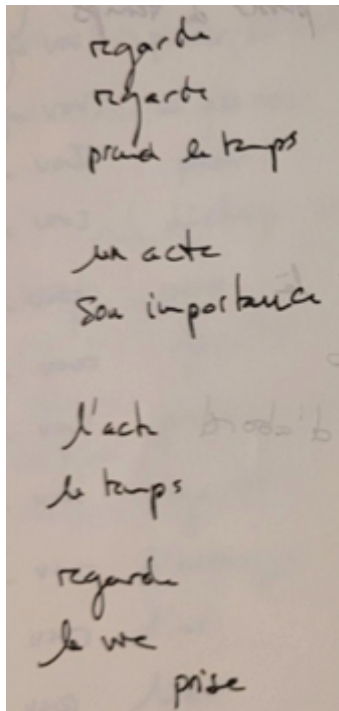 regarde
regarde
prend le temps
un acte
son importance
l'acte
le temps
regarde
la vie
prise